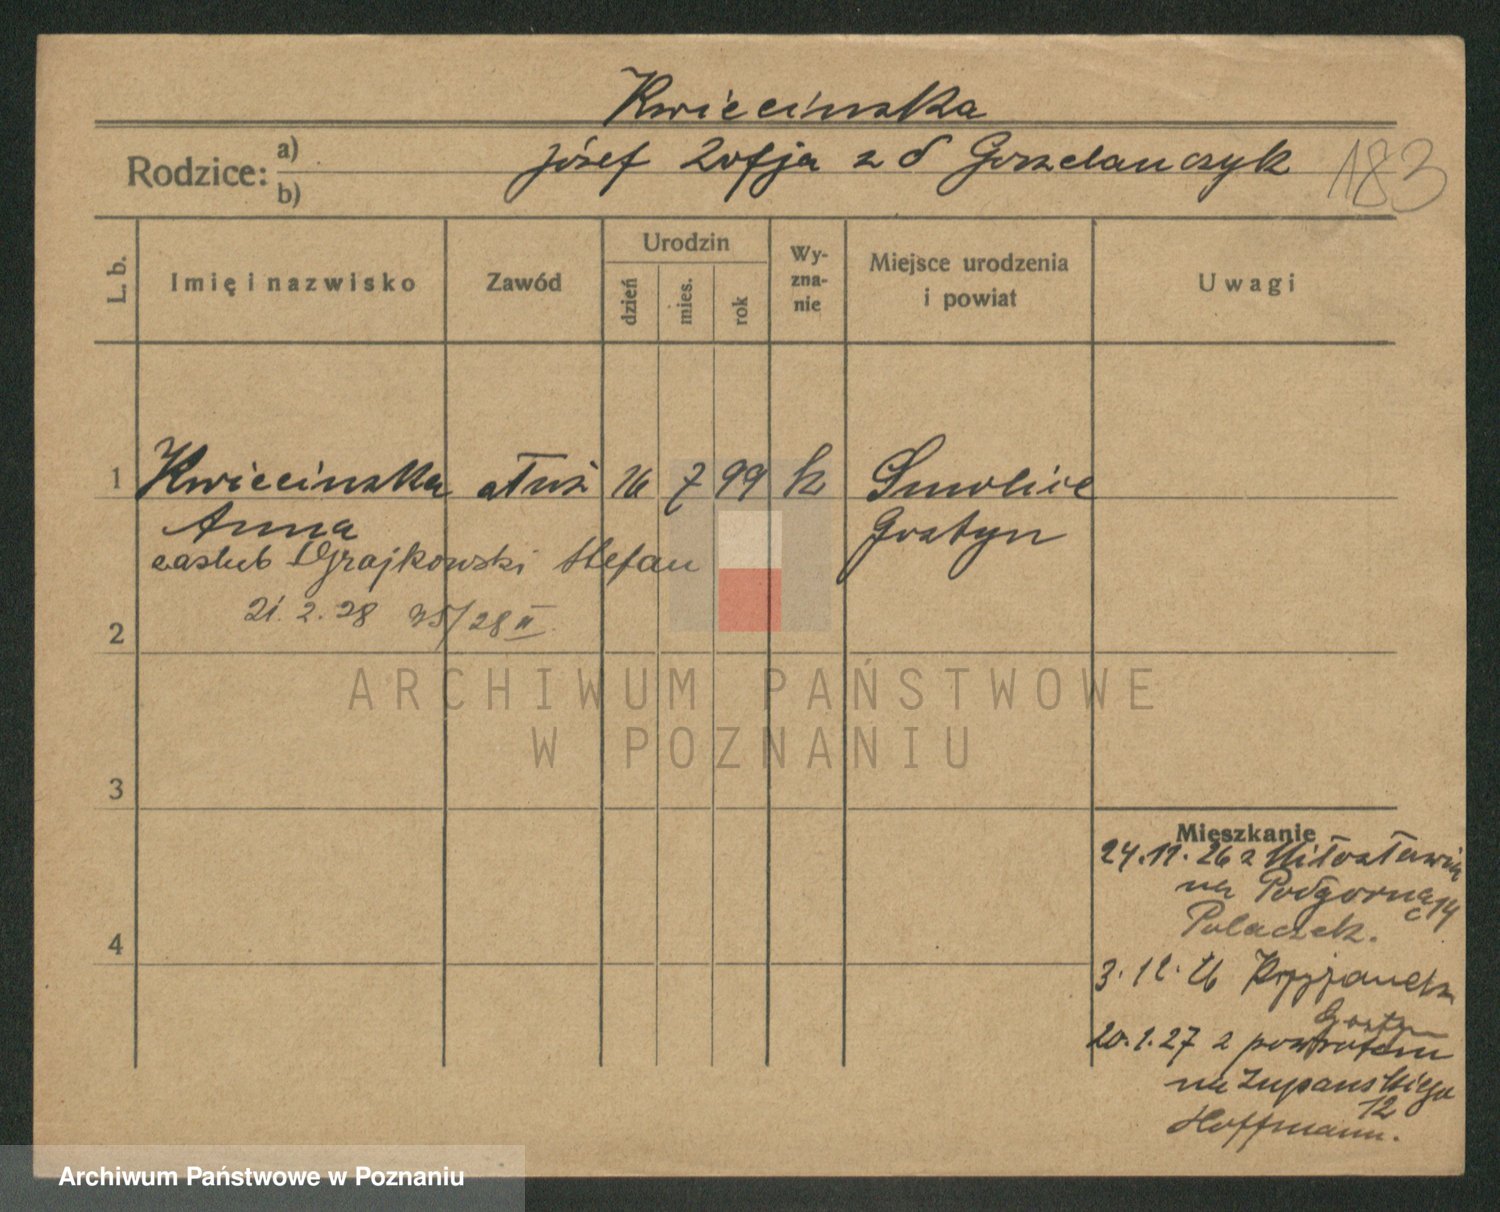 Kwiecińska
Rodzice: a) b) Józef Zofja z d Gorzelanczyk 183
L. b. Imię i nazwisko Zawód Urodzin dzień mies. rok Wyznanie Miejsce urodzenia i powiat Uwagi
1 Kwiecińska służ 16 7 99 k Smolice
Anna Gostyn
zaślub Grajkowski Stefan
21. 2. 28 75/28 II
2
ARCHIWUM PAŃSTWOWE
W POZNANIU
3
Mieszkanie
24.11.26 z Miłosławia
na Podgorna 14
Polaczek.
4
3.12.26
Gostyn
20.1.27 z powrotem
na Zupanskiego
12
Hoffmann.
Archiwum Państwowe w Poznaniu